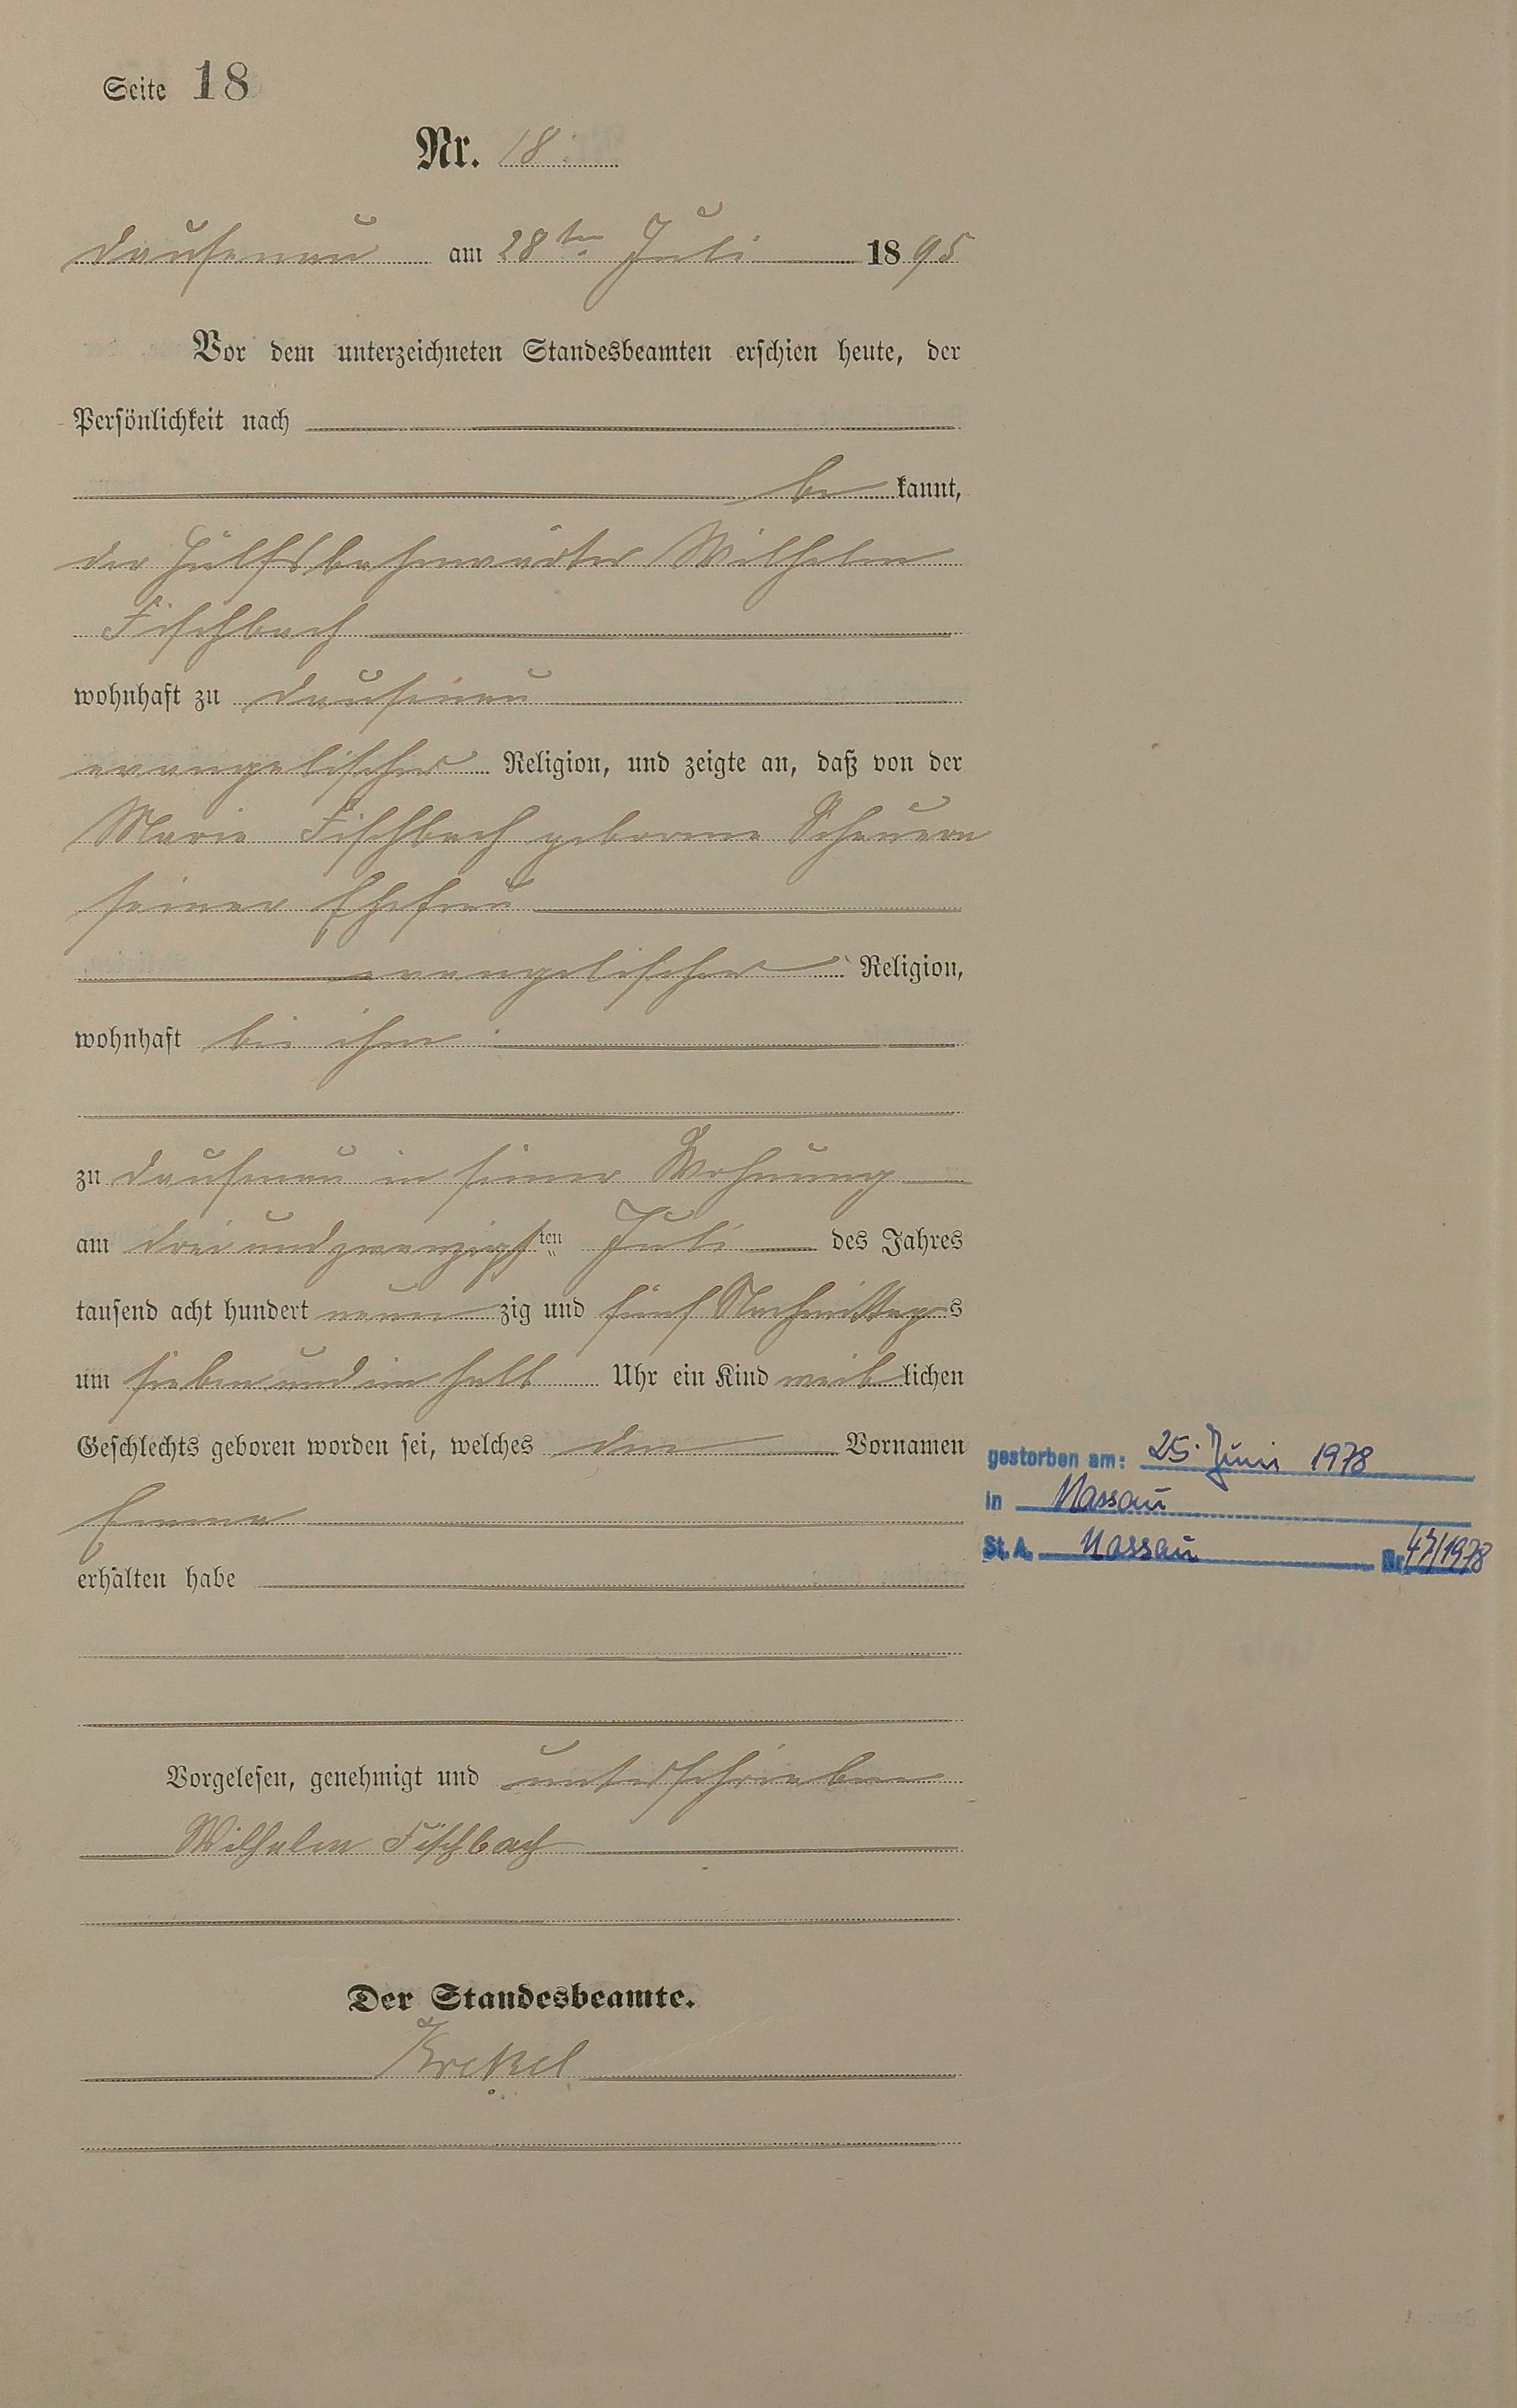 Seite 18
Nr. 18.
Dausenau am 28ten Juli 1895
Vor dem unterzeichneten Standesbeamten erschien heute, der
Persönlichkeit nach
be kannt,
der Hülfsbahnwärter Wilhelm
Fischbach
wohnhaft zu Dausenau
evangelischer Religion, und zeigte an, daß von der
Marie Fischbach geborene Scheuern
seiner Ehefrau
evangelischer Religion,
wohnhaft bei ihm
zu Dausenau in seiner Wohnung
am dreiundzwanzigsten Juli des Jahres
tausend acht hundert neun zig und fünf Nachmittags
um sieben und ein halb Uhr ein Kind weiblichen
Geschlechts geboren worden sei, welches den Vornamen
gestorben am: 25. Juni 1978
Emma
in Nassau
St. A. Nassau Nr. 47/1978
erhalten habe
Vorgelesen, genehmigt und unterschrieben
Wilhelm Fischbach
Der Standesbeamte.
Krekel